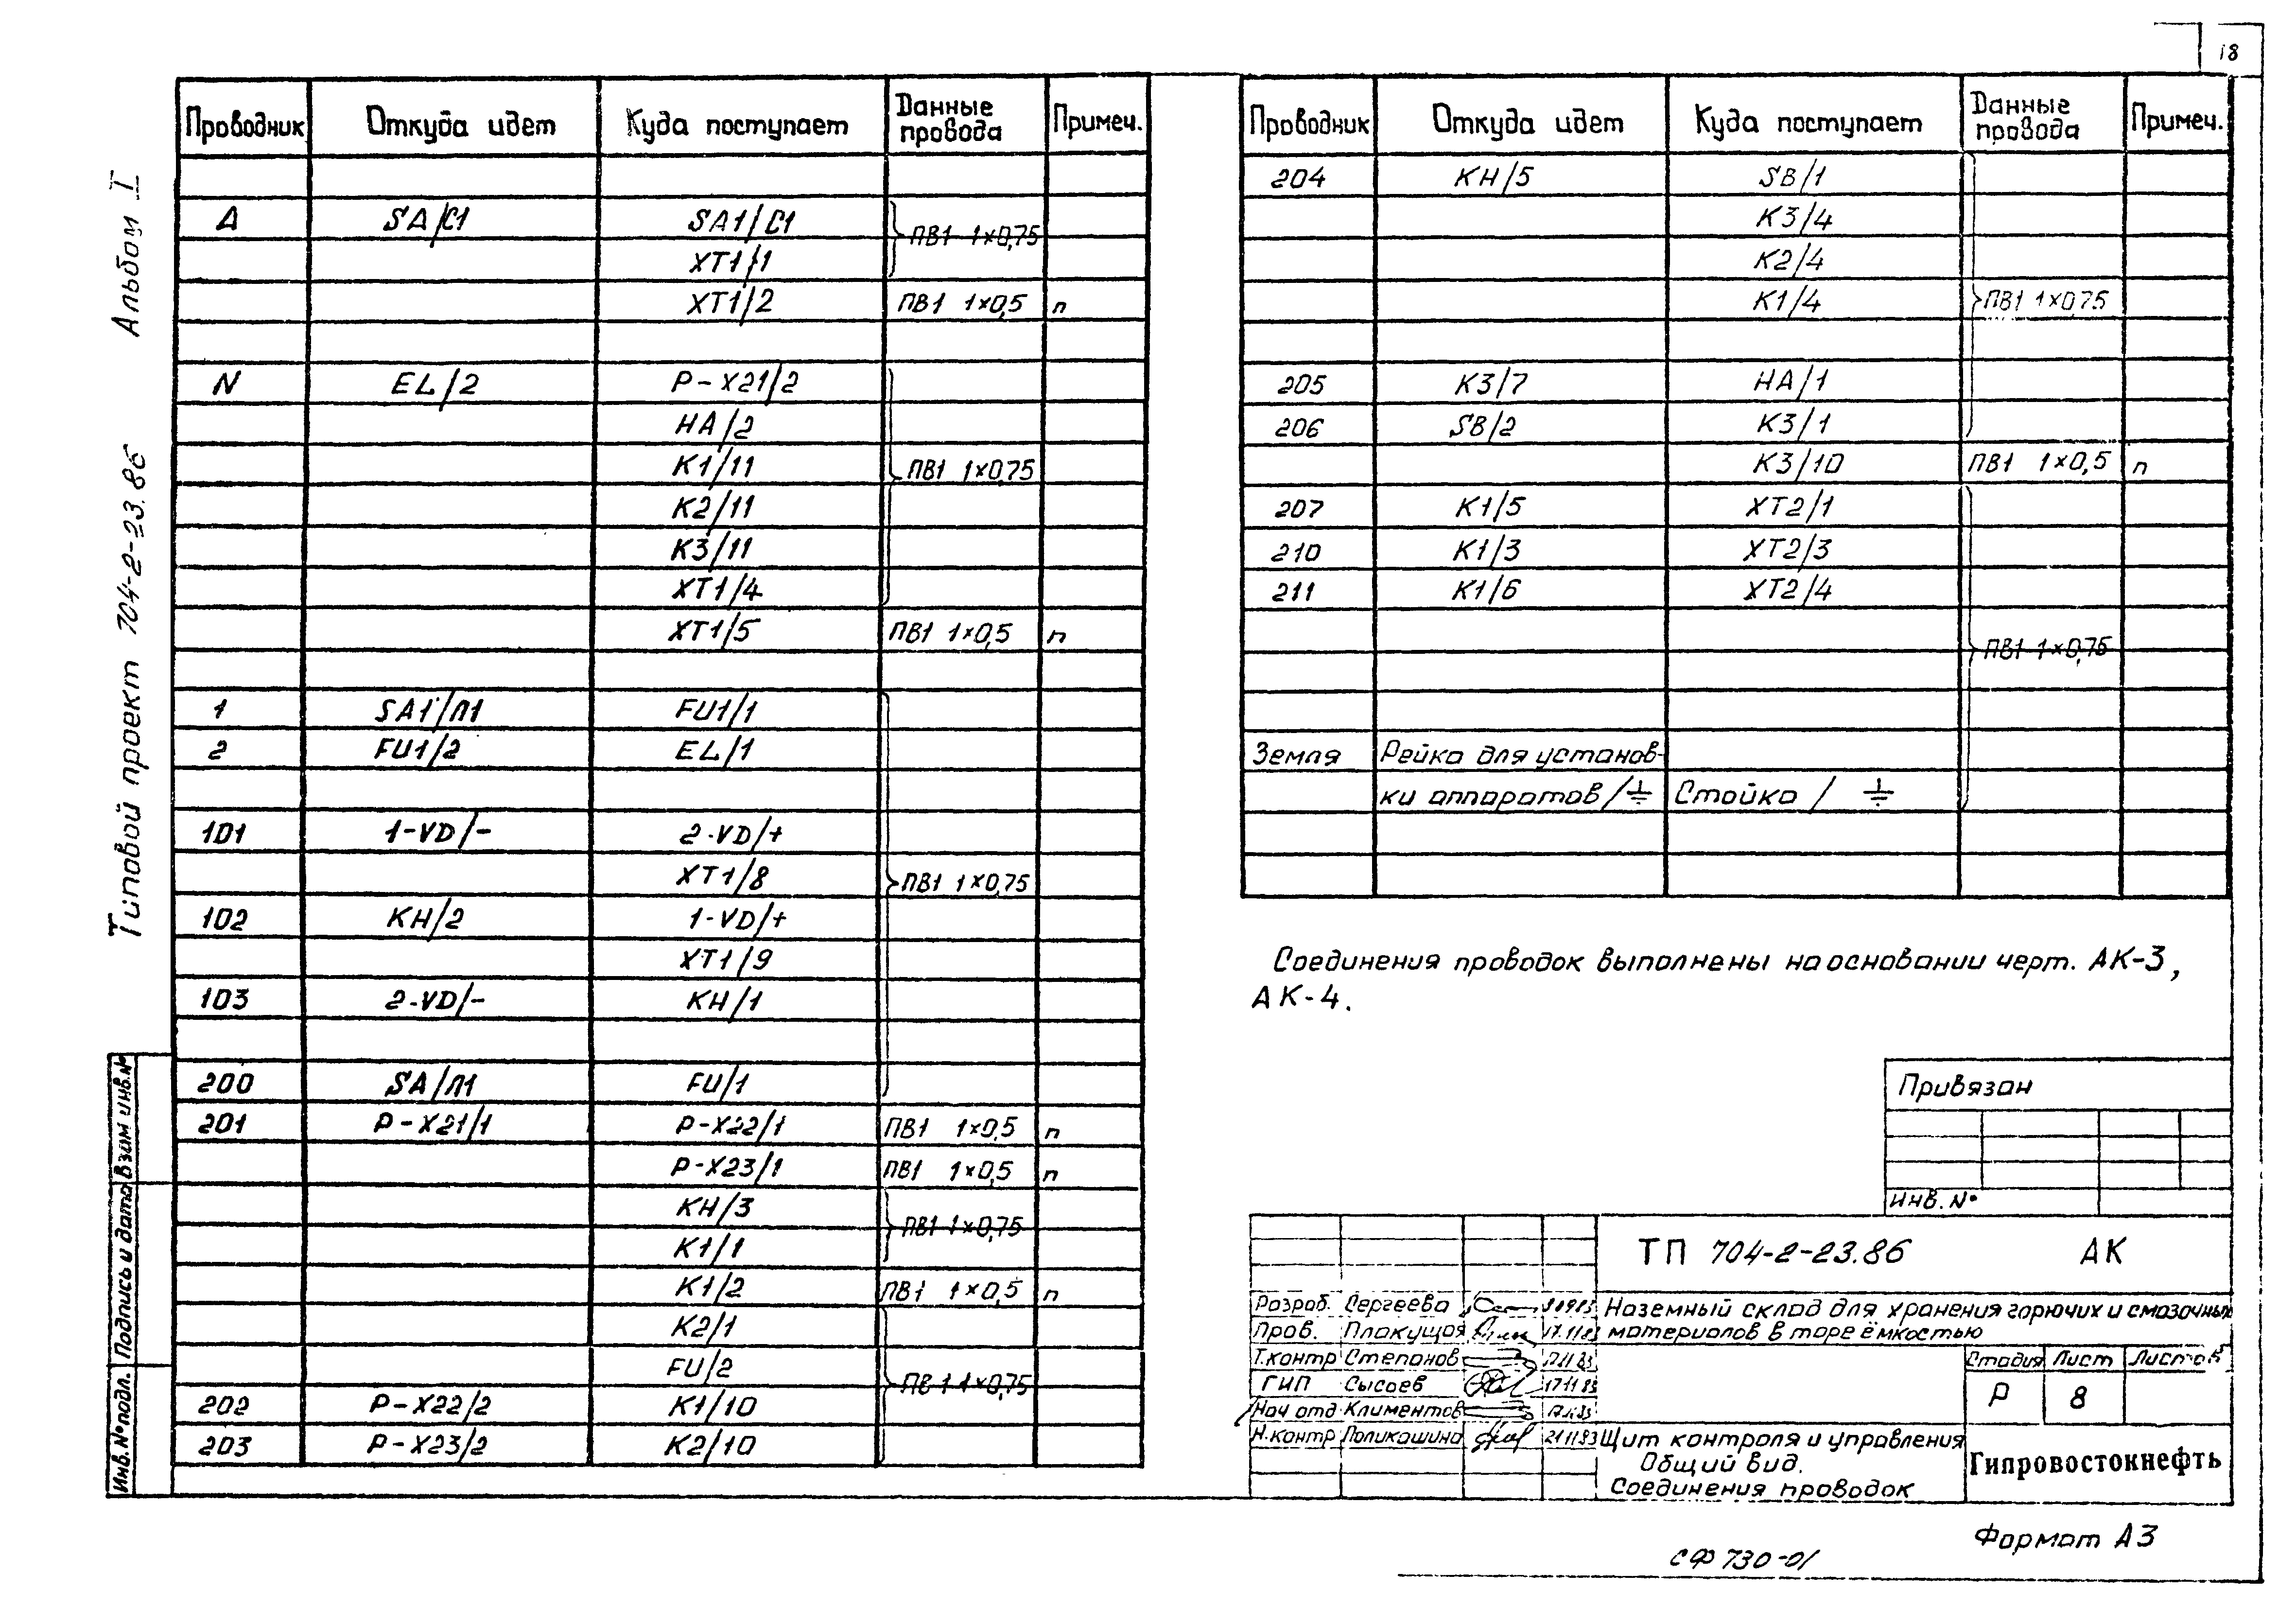 18
Альбом I
Типовой проект 704-2-23.86
Взам инв.№
Подпись и дата
Инв.№ подл.
Проводник Откуда идет Куда поступает Данные провода Примеч.
А SA/С1 SA1/С1 ПВ1 1×0,75
XT1/1
XT1/2 ПВ1 1×0,5 п
N EL/2 Р-Х21/2
НА/2
К1/11 ПВ1 1×0,75
К2/11
К3/11
XT1/4
XT1/5 ПВ1 1×0,5 п
1 SA1/Л1 FU1/1
2 FU1/2 EL/1
101 1-VD/- 2-VD/+
XT1/8 ПВ1 1×0,75
102 КН/2 1-VD/+
XT1/9
103 2-VD/- КН/1
200 SA/Л1 FU/1
201 Р-Х21/1 Р-Х22/1 ПВ1 1×0,5 п
Р-Х23/1 ПВ1 1×0,5 п
КН/3 ПВ1 1×0,75
К1/1
К1/2 ПВ1 1×0,5 п
К2/1
FU/2 ПВ1 1×0,75
202 Р-Х22/2 К1/10
203 Р-Х23/2 К2/10
Проводник Откуда идет Куда поступает Данные провода Примеч.
204 КН/5 SB/1
К3/4
К2/4
К1/4 ПВ1 1×0,75
205 К3/7 НА/1
206 SB/2 К3/1
К3/10 ПВ1 1×0,5 п
207 К1/5 XT2/1
210 К1/3 XT2/3
211 К1/6 XT2/4
ПВ1 1×0,75
Земля Рейка для установ-
ки аппаратов/⏚ Стойка / ⏚
Соединения проводок выполнены на основании черт. АК-3,
АК-4.
Привязан
Инв.№
ТП 704-2-23.86 АК
Разраб. Сергеева
Пров. Плакущая 17.11.83
Т.контр Степанов
ГИП Сысоев 17.11.83
Нач отд Климентов
Н.контр Поликашина 21.11.83
Наземный склад для хранения горючих и смазочных
материалов в таре ёмкостью
Стадия Лист Листов
Р 8
Щит контроля и управления
Общий вид.
Соединения проводок
Гипровостокнефть
Формат А3
СФ 730-01